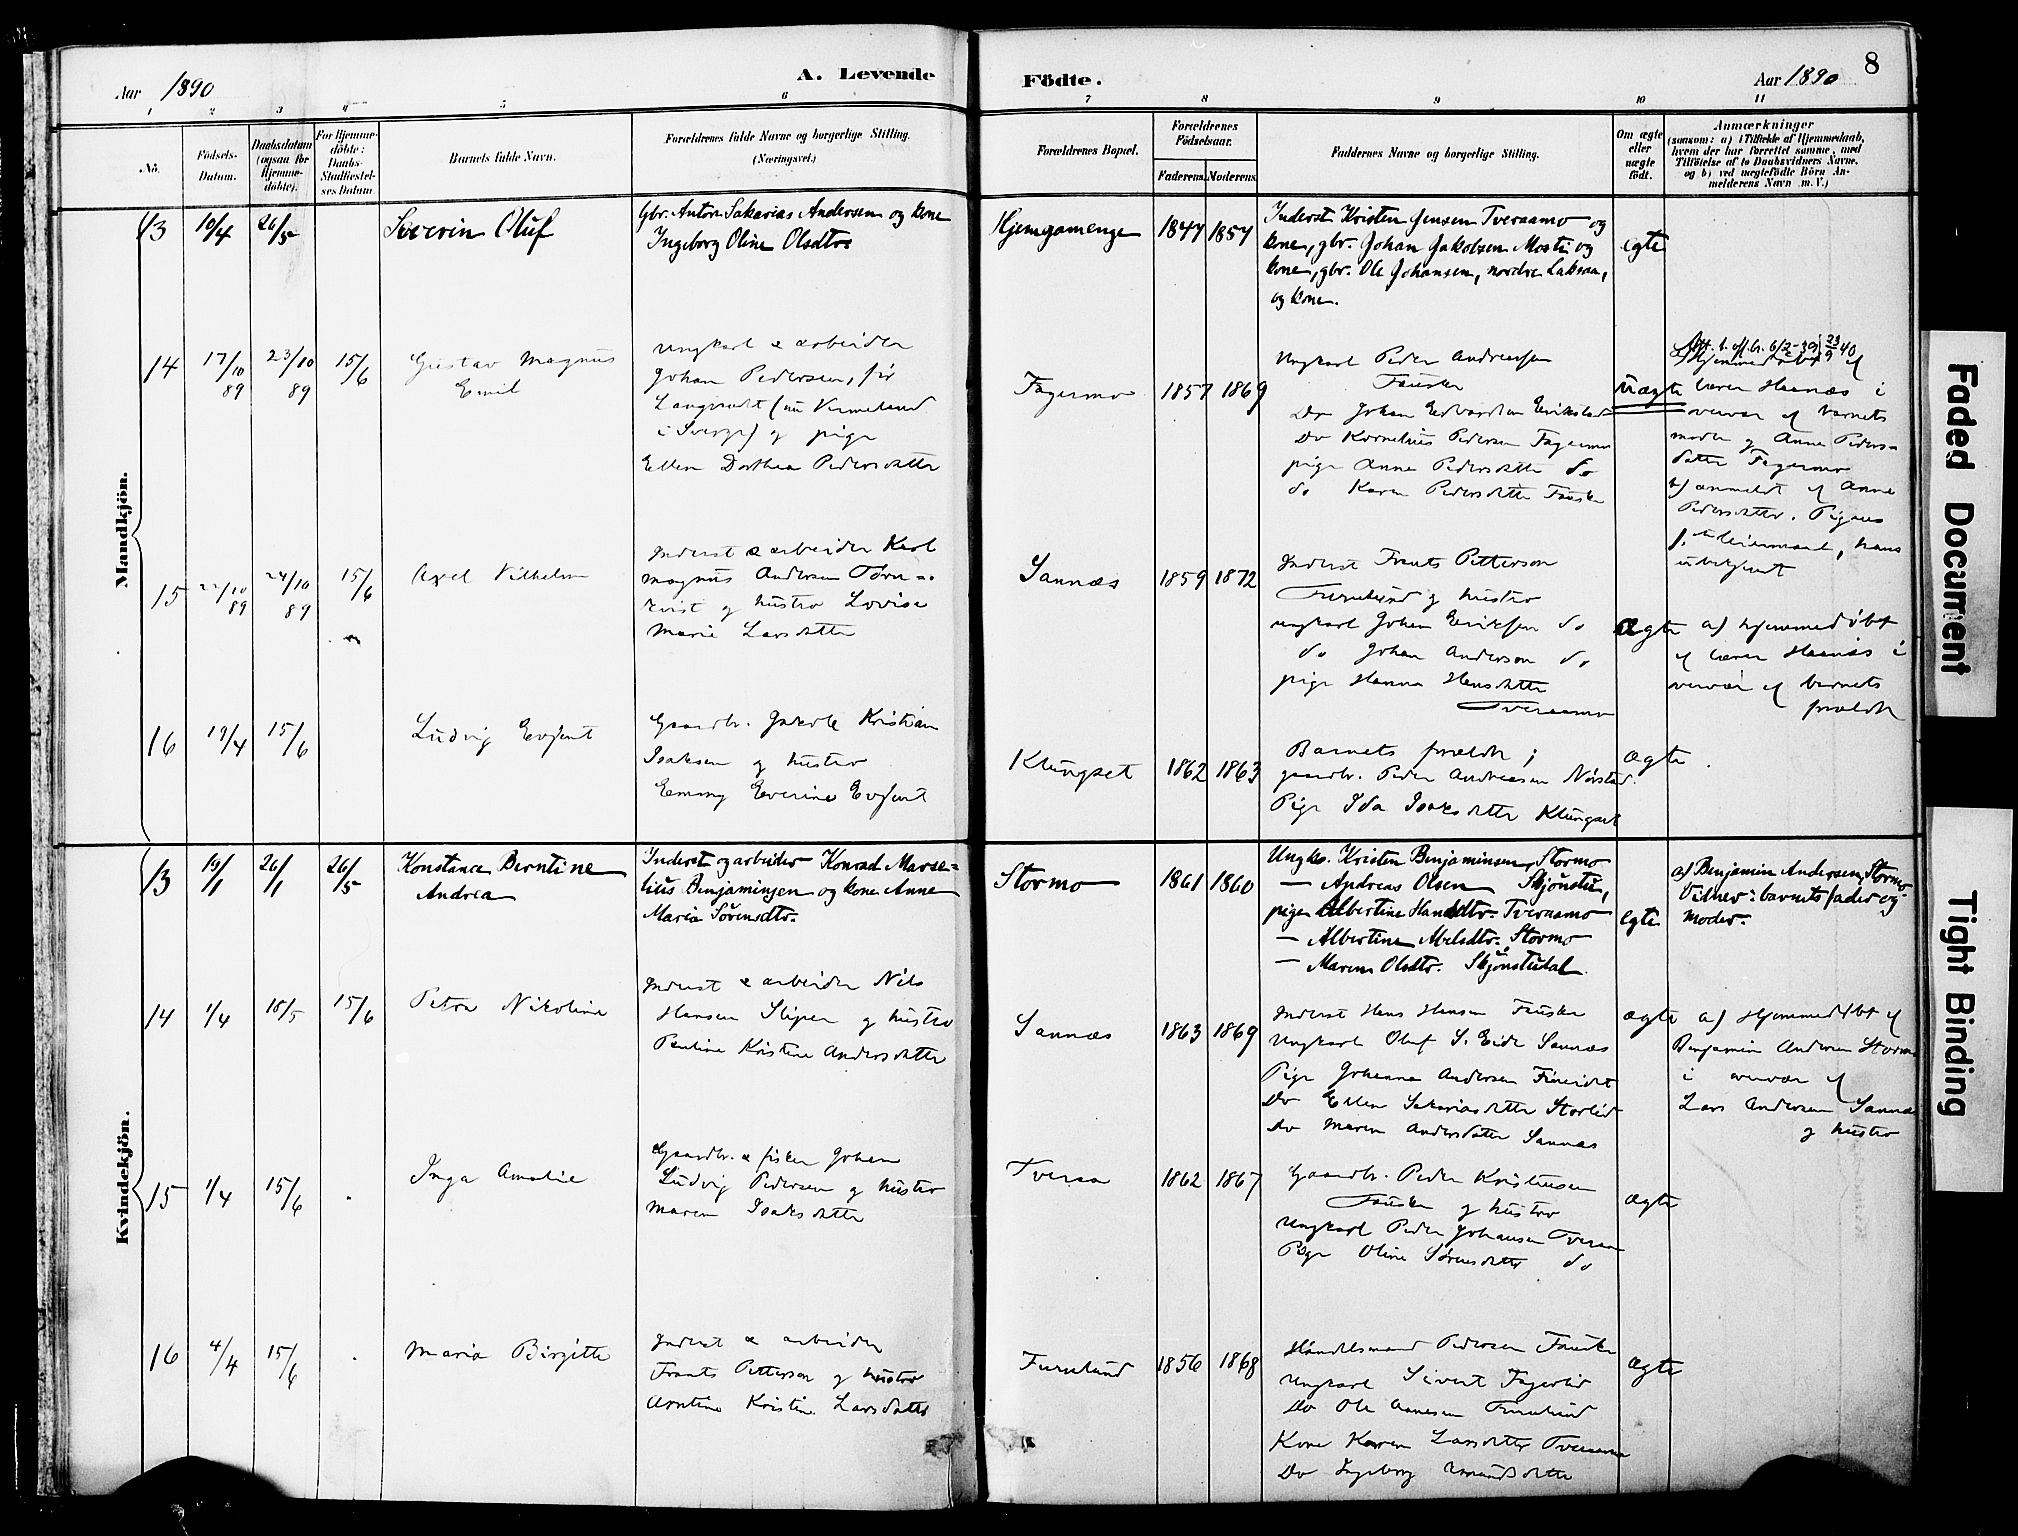 Aar 1890
A. Levende
Födte.
Aar 1890
8
1 2 3 4 5 6 7 8 9 10 11
No.
Födsels-
Datum.
Daabsdatum
(ogsaa for
Hjemme-
döbte).
For Hjemme-
döbte:
Daabs-
Stadfæstel-
ses Datum.
Barnets fulde Navn.
Forældrenes fulde Navne og borgerlige Stilling.
(Næringsvei.)
Forældrenes Bopæl.
Forældrenes
Födselsaar.
Faderens.
Moderens.
Faddernes Navne og borgerlige Stilling.
Om ægte
eller
uægte
födt.
Anmærkninger
(saasom: a) i Tilfælde af Hjemmedaab,
hvem der har forrettet samme, med
Tilföielse af to Daabsvidners Navne,
og b) ved uægtefödte Börn An-
melderens Navn m. V.)
Mandkjön.
13 10/4 26/5
Severin Oluf
Gbr. Anton Sakarias Andersen og kone
Ingeborg Oline Olsdtr.
Hjemgamenge
1847 1857
Inderst Kristen Jensen Tveraamo og
kone, gbr. Johan Jakobsen Mosti og
kone, gbr. Ole Johansen, nordre Laksaa,
og kone.
egte
14 17/10 89 23/10 89 15/6
Gustav Magnus
Emil
Ungkarl & arbeider
Johan Pedersen, før
Langvadt (nu Vermeland
i Sverge) og pige
Ellen Dorthea Pedersdatter
Fagermo
1857 1869
Ungkarl Peder Andreassen
Fauske
Do Johan Edvardsen Erikstad
Do Kornelius Pedersen Fagermo
pige Anne Pedersdatter do
do Karen Pedersdatter Fauske
Uægte
Att. t. off. br. 6/2-39 23/9 40
a) Hjemmedøbt af
lærer Haanæs i
overvær af barnets
moder og Anne Peders-
datter Fagermo
b) anmeldt af Anne
Pedersdatter. Pigens
1ste leiermaal, hans
ubekjent
15 22/10 89 24/10 89 15/6
Axel Vilhelm
Inderst & arbeider Karl
Magnus Andersen Törn-
kvist og hustro Lovise
Marie Larsdatter
Sannæs
1859 1872
Inderst Frants Petterson
Furulund og hustro
ungkarl Johan Eriksen do
do Johan Anderson do
pige Hanna Hansdatter
Tveraamo
Ægte
a) Hjemmedøbt
af lærer Haanæs i
overvær af barnets
forældre
16 19/4 15/6
Ludvig Evjent
Gaardbr. Jakob Kristian
Isaksen og hustro
Emmy Everine Evjent
Klungset
1862 1863
Barnets forældre;
gaardbr. Peder Andreasen Nørstad.
Pige Ida Isaksdatter Klungset
Ægte
Kvindekjön.
13 19/1 26/1 26/5
Konstance Berntine
Andrea
Inderst og arbeider Konrad Marse-
lius Benjaminsen og kone Anne
Maria Sörensdtr.
Stormo
1861 1860
Ungka. Kristen Benjaminsen, Stormo
— Andreas Olsen Skjönstu,
pige Albertine Hansdtr. Tveraamo
— Albertine Abelsdtr. Stormo
— Maren Olsdtr. Skjönstudal.
egte
a) Benjamin Andersen, Stormo
Vidner: barnets fader og
moder.
14 1/4 18/5 15/6
Petra Nikoline
Inderst & arbeider Nils
Hansen Sliper og hustro
Pauline Kristine Andersdatter
Sannæs
1863 1869
Inderst Hans Hansen Fauske
Ungkarl Oluf S. Eide Sannæs
Pige Johanna Andersen Fineidet
Do Ellen Sakariasdatter Storlid
do Maren Andersdatter Sannæs
Ægte
a) Hjemmedøbt af
Benjamin Andersen Stormo
i overvær af
Lars Andersen Sannæs
og hustro
15 1/4 15/6
Inga Amalie
Gaardbr. & fisker Johan
Ludvig Pedersen og hustro
Maren Isaksdatter
Tveraa
1862 1867
Gaardbr. Peder Kristensen
Fauske og hustro
Ungkarl Peder Johansen Tveraa
Pige Oline Sørensdatter do
Ægte
16 4/4 15/6
Maria Birgitte
Inderst & arbeider
Frants Petterson og hustro
Arntine Kristine Larsdatter
Furulund
1856 1868
Handelsmand Pedersen Fauske
Ungkarl Sivert Fagerlid
Do Ole Furulund
Kone Karen Larsdatter Tveraamo
Do Ingeborg datter
Ægte
Faded Document
Tight Binding